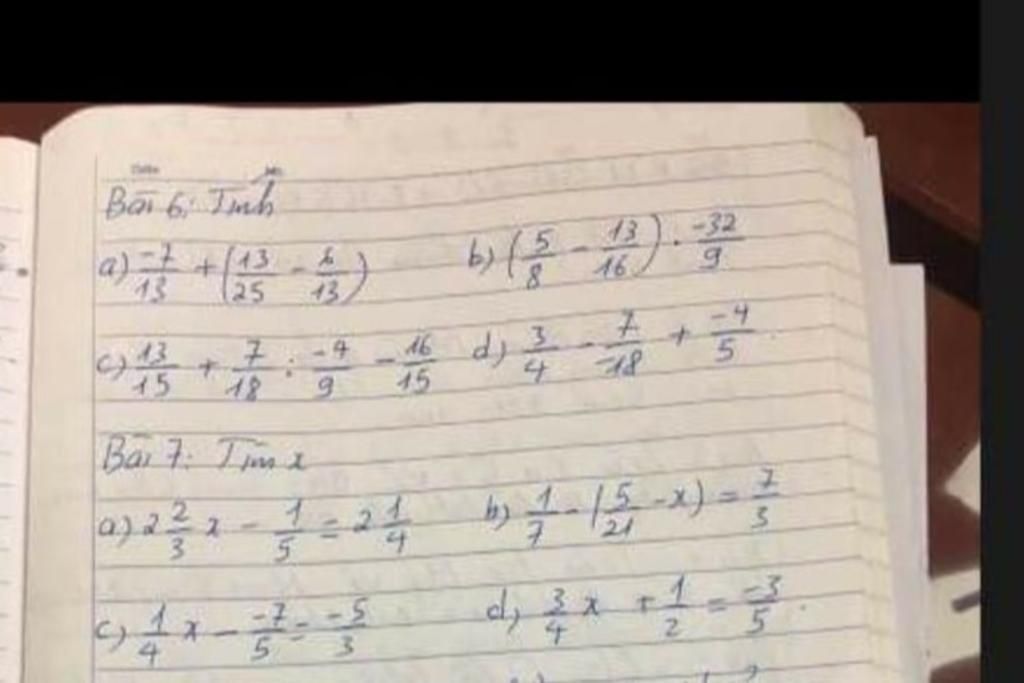 Bài 6: Tính
a) \frac{-7}{13} + (\frac{13}{25} - \frac{6}{13}) b) (\frac{5}{8} - \frac{13}{16}) . \frac{-32}{9}
c) \frac{13}{15} + \frac{7}{18} : \frac{-4}{9} - \frac{16}{15} d) \frac{3}{4} - \frac{7}{-18} + \frac{-4}{5}.
Bài 7: Tìm x
a) 2\frac{2}{3} x - \frac{1}{5} = 2\frac{1}{4} b) \frac{1}{7} - (\frac{5}{21} - x) = \frac{7}{3}
c) \frac{1}{4} x - \frac{-7}{5} = \frac{-5}{3} d) \frac{3}{4} x + \frac{1}{2} = \frac{-3}{5}.